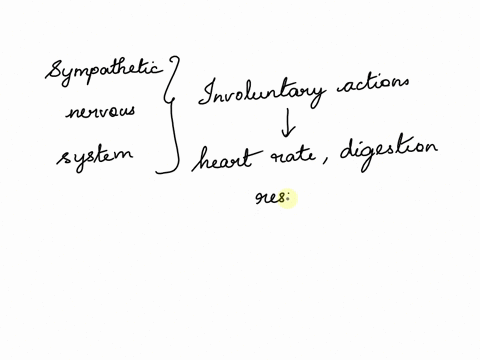 Sympathetic
nervous
system
Involuntary actions
↓
heart rate, digestion
res